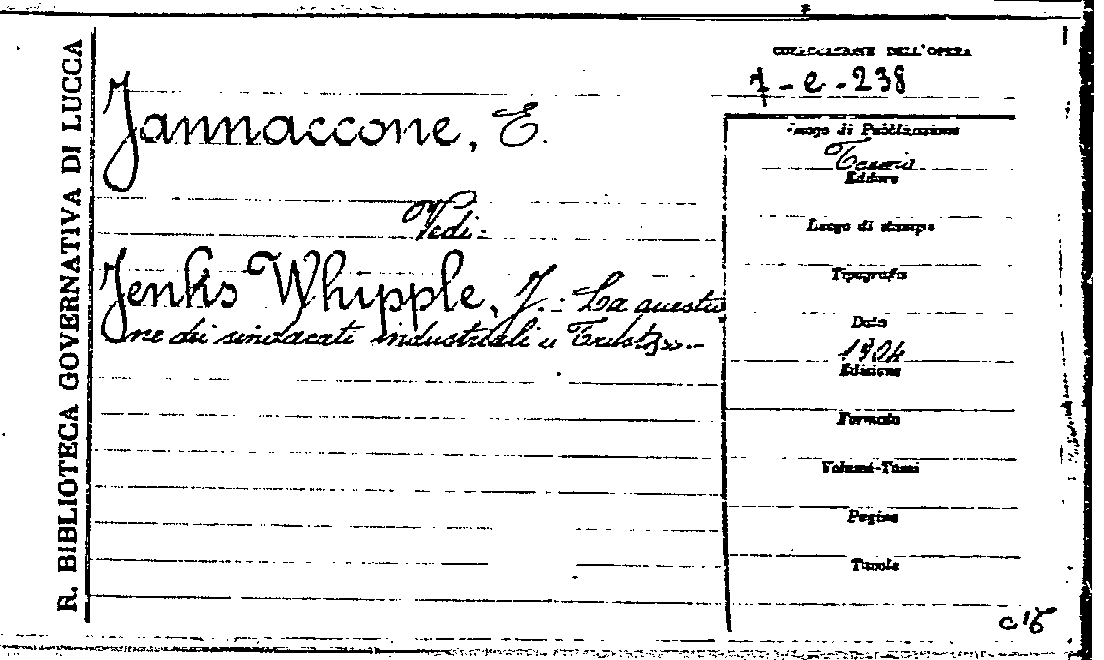 R. BIBLIOTECA GOVERNATIVA DI LUCCA
COLLOCAZIONE DELL'OPERA
7-e-238
Jannaccone, E.
Vedi:
Jenks Whipple, J.: La questio
ne dei sindacati industriali
Luogo di Pubblicazione
Editore
Luogo di stampa
Tipografia
Data
1904
Edizione
Formato
Volumi-Tomi
Pagine
Tavole